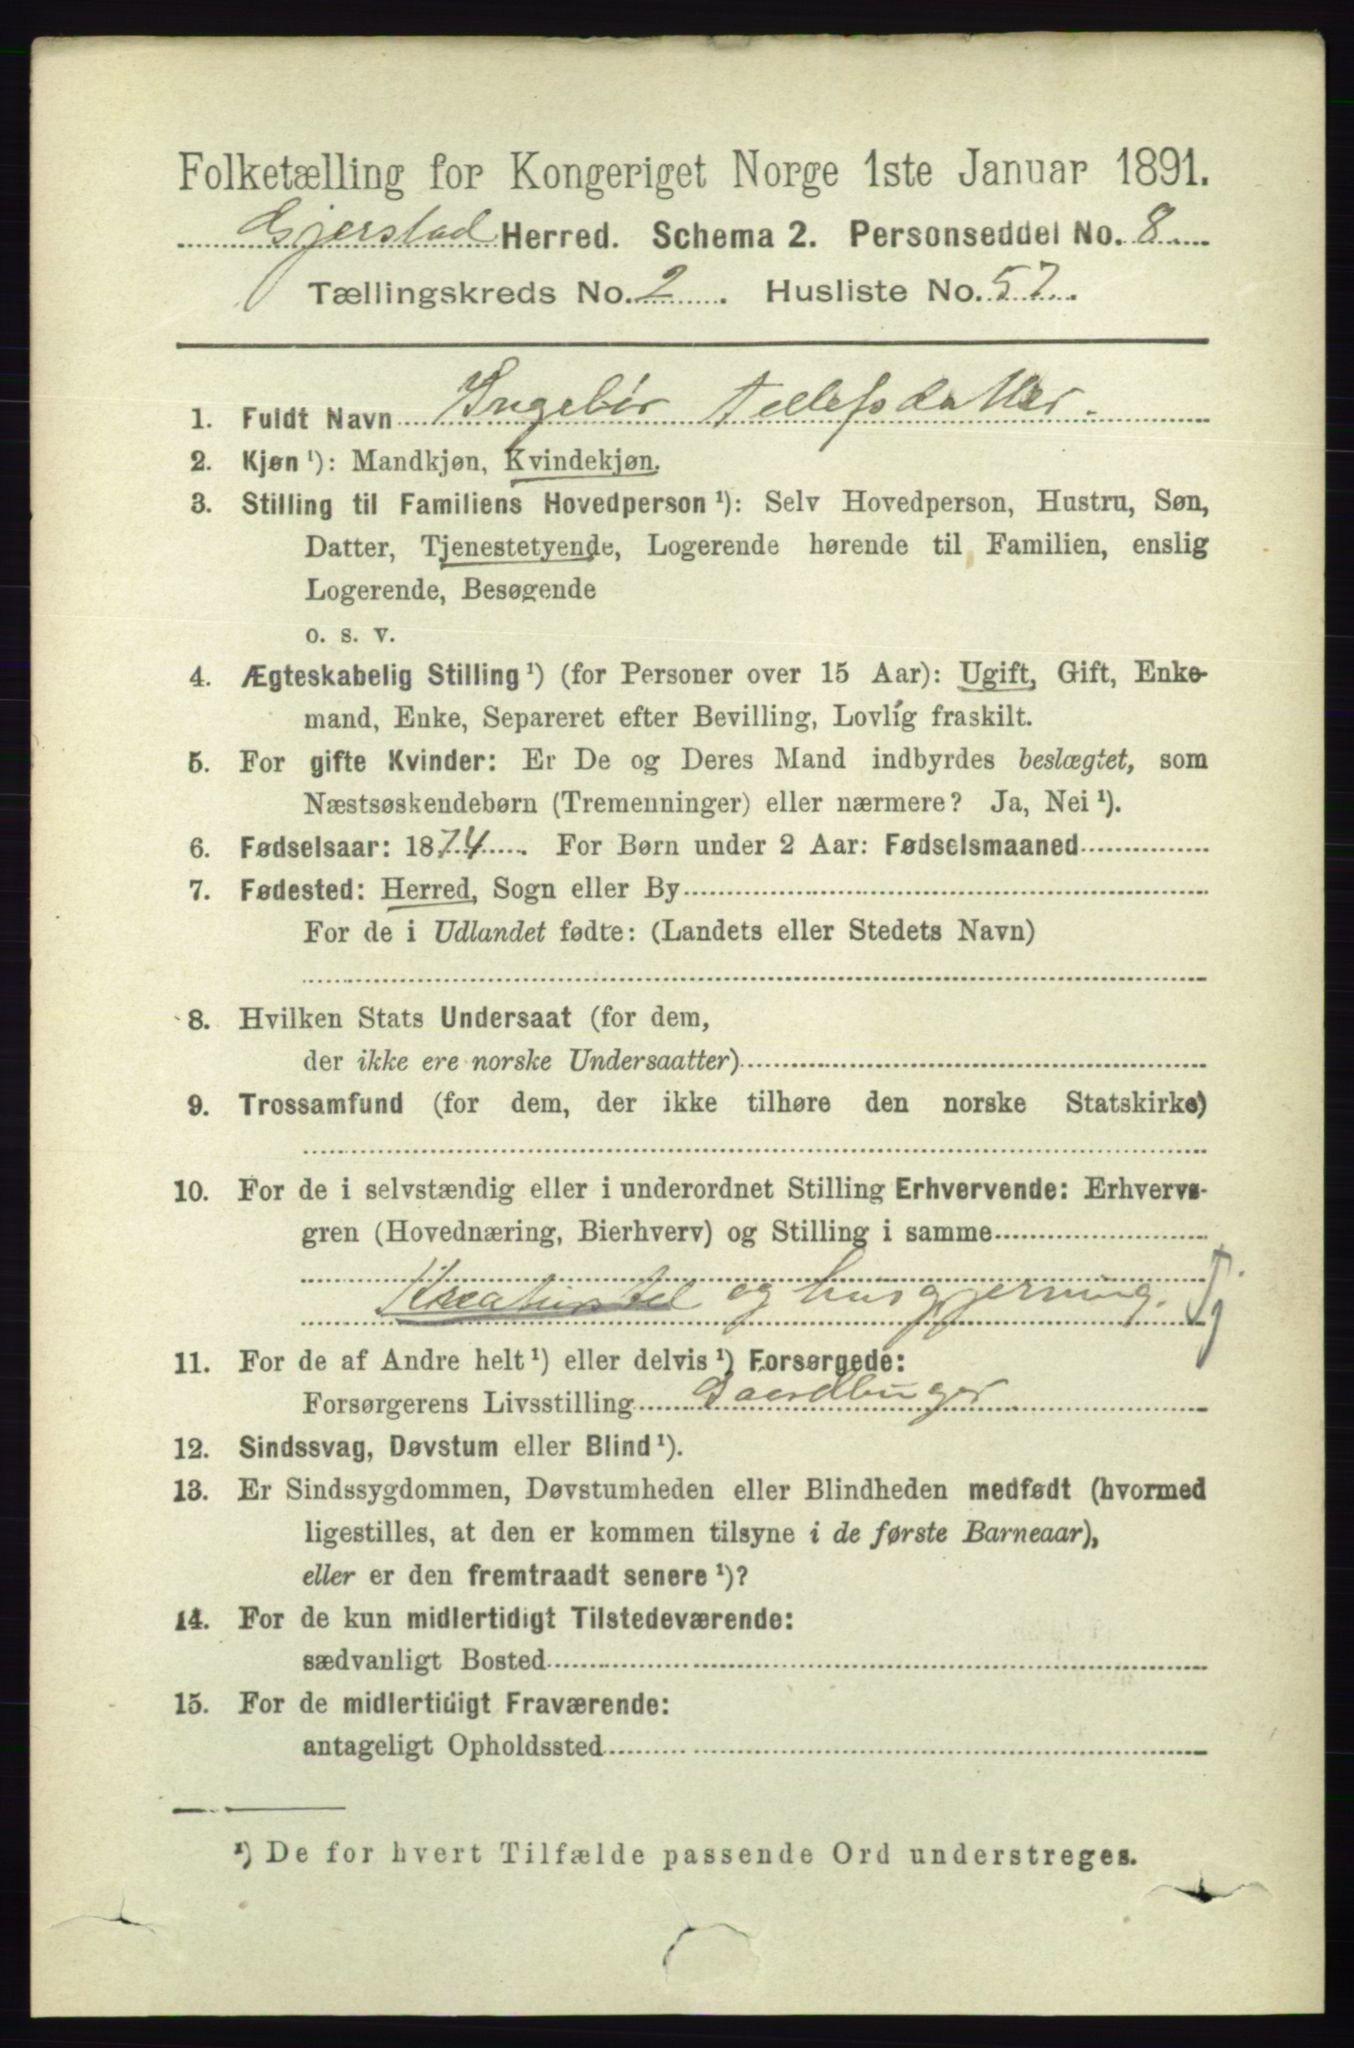 Folketælling for Kongeriget Norge 1ste Januar 1891.
Gjerstad Herred. Schema 2. Personseddel No. 8
Tællingskreds No. 2. Husliste No. 57.
1. Fuldt Navn Ingebor Tellefsdatter.
2. Kjøn ¹): Mandkjøn, Kvindekjøn.
3. Stilling til Familiens Hovedperson ¹): Selv Hovedperson, Hustru, Søn,
Datter, Tjenestetyende, Logerende hørende til Familien, enslig
Logerende, Besøgende
o. s. v.
4. Ægteskabelig Stilling ¹) (for Personer over 15 Aar): Ugift, Gift, Enke-
mand, Enke, Separeret efter Bevilling, Lovlig fraskilt.
5. For gifte Kvinder: Er De og Deres Mand indbyrdes beslægtet, som
Næstsøskendebørn (Tremenninger) eller nærmere? Ja, Nei ¹).
6. Fødselsaar: 1874. For Børn under 2 Aar: Fødselsmaaned
7. Fødested: Herred, Sogn eller By
For de i Udlandet fødte: (Landets eller Stedets Navn)
8. Hvilken Stats Undersaat (for dem,
der ikke ere norske Undersaatter)
9. Trossamfund (for dem, der ikke tilhøre den norske Statskirke)
10. For de i selvstændig eller i underordnet Stilling Erhvervende: Erhvervs-
gren (Hovednæring, Bierhverv) og Stilling i samme
Kreaturstel og husgjerning. Tj
11. For de af Andre helt ¹) eller delvis ¹) Forsørgede:
Forsørgerens Livsstilling
12. Sindssvag, Døvstum eller Blind ¹).
13. Er Sindssygdommen, Døvstumheden eller Blindheden medfødt (hvormed
ligestilles, at den er kommen tilsyne i de første Barneaar),
eller er den fremtraadt senere ¹)?
14. For de kun midlertidigt Tilstedeværende:
sædvanligt Bosted
15. For de midlertidigt Fraværende:
antageligt Opholdssted
¹) De for hvert Tilfælde passende Ord understreges.